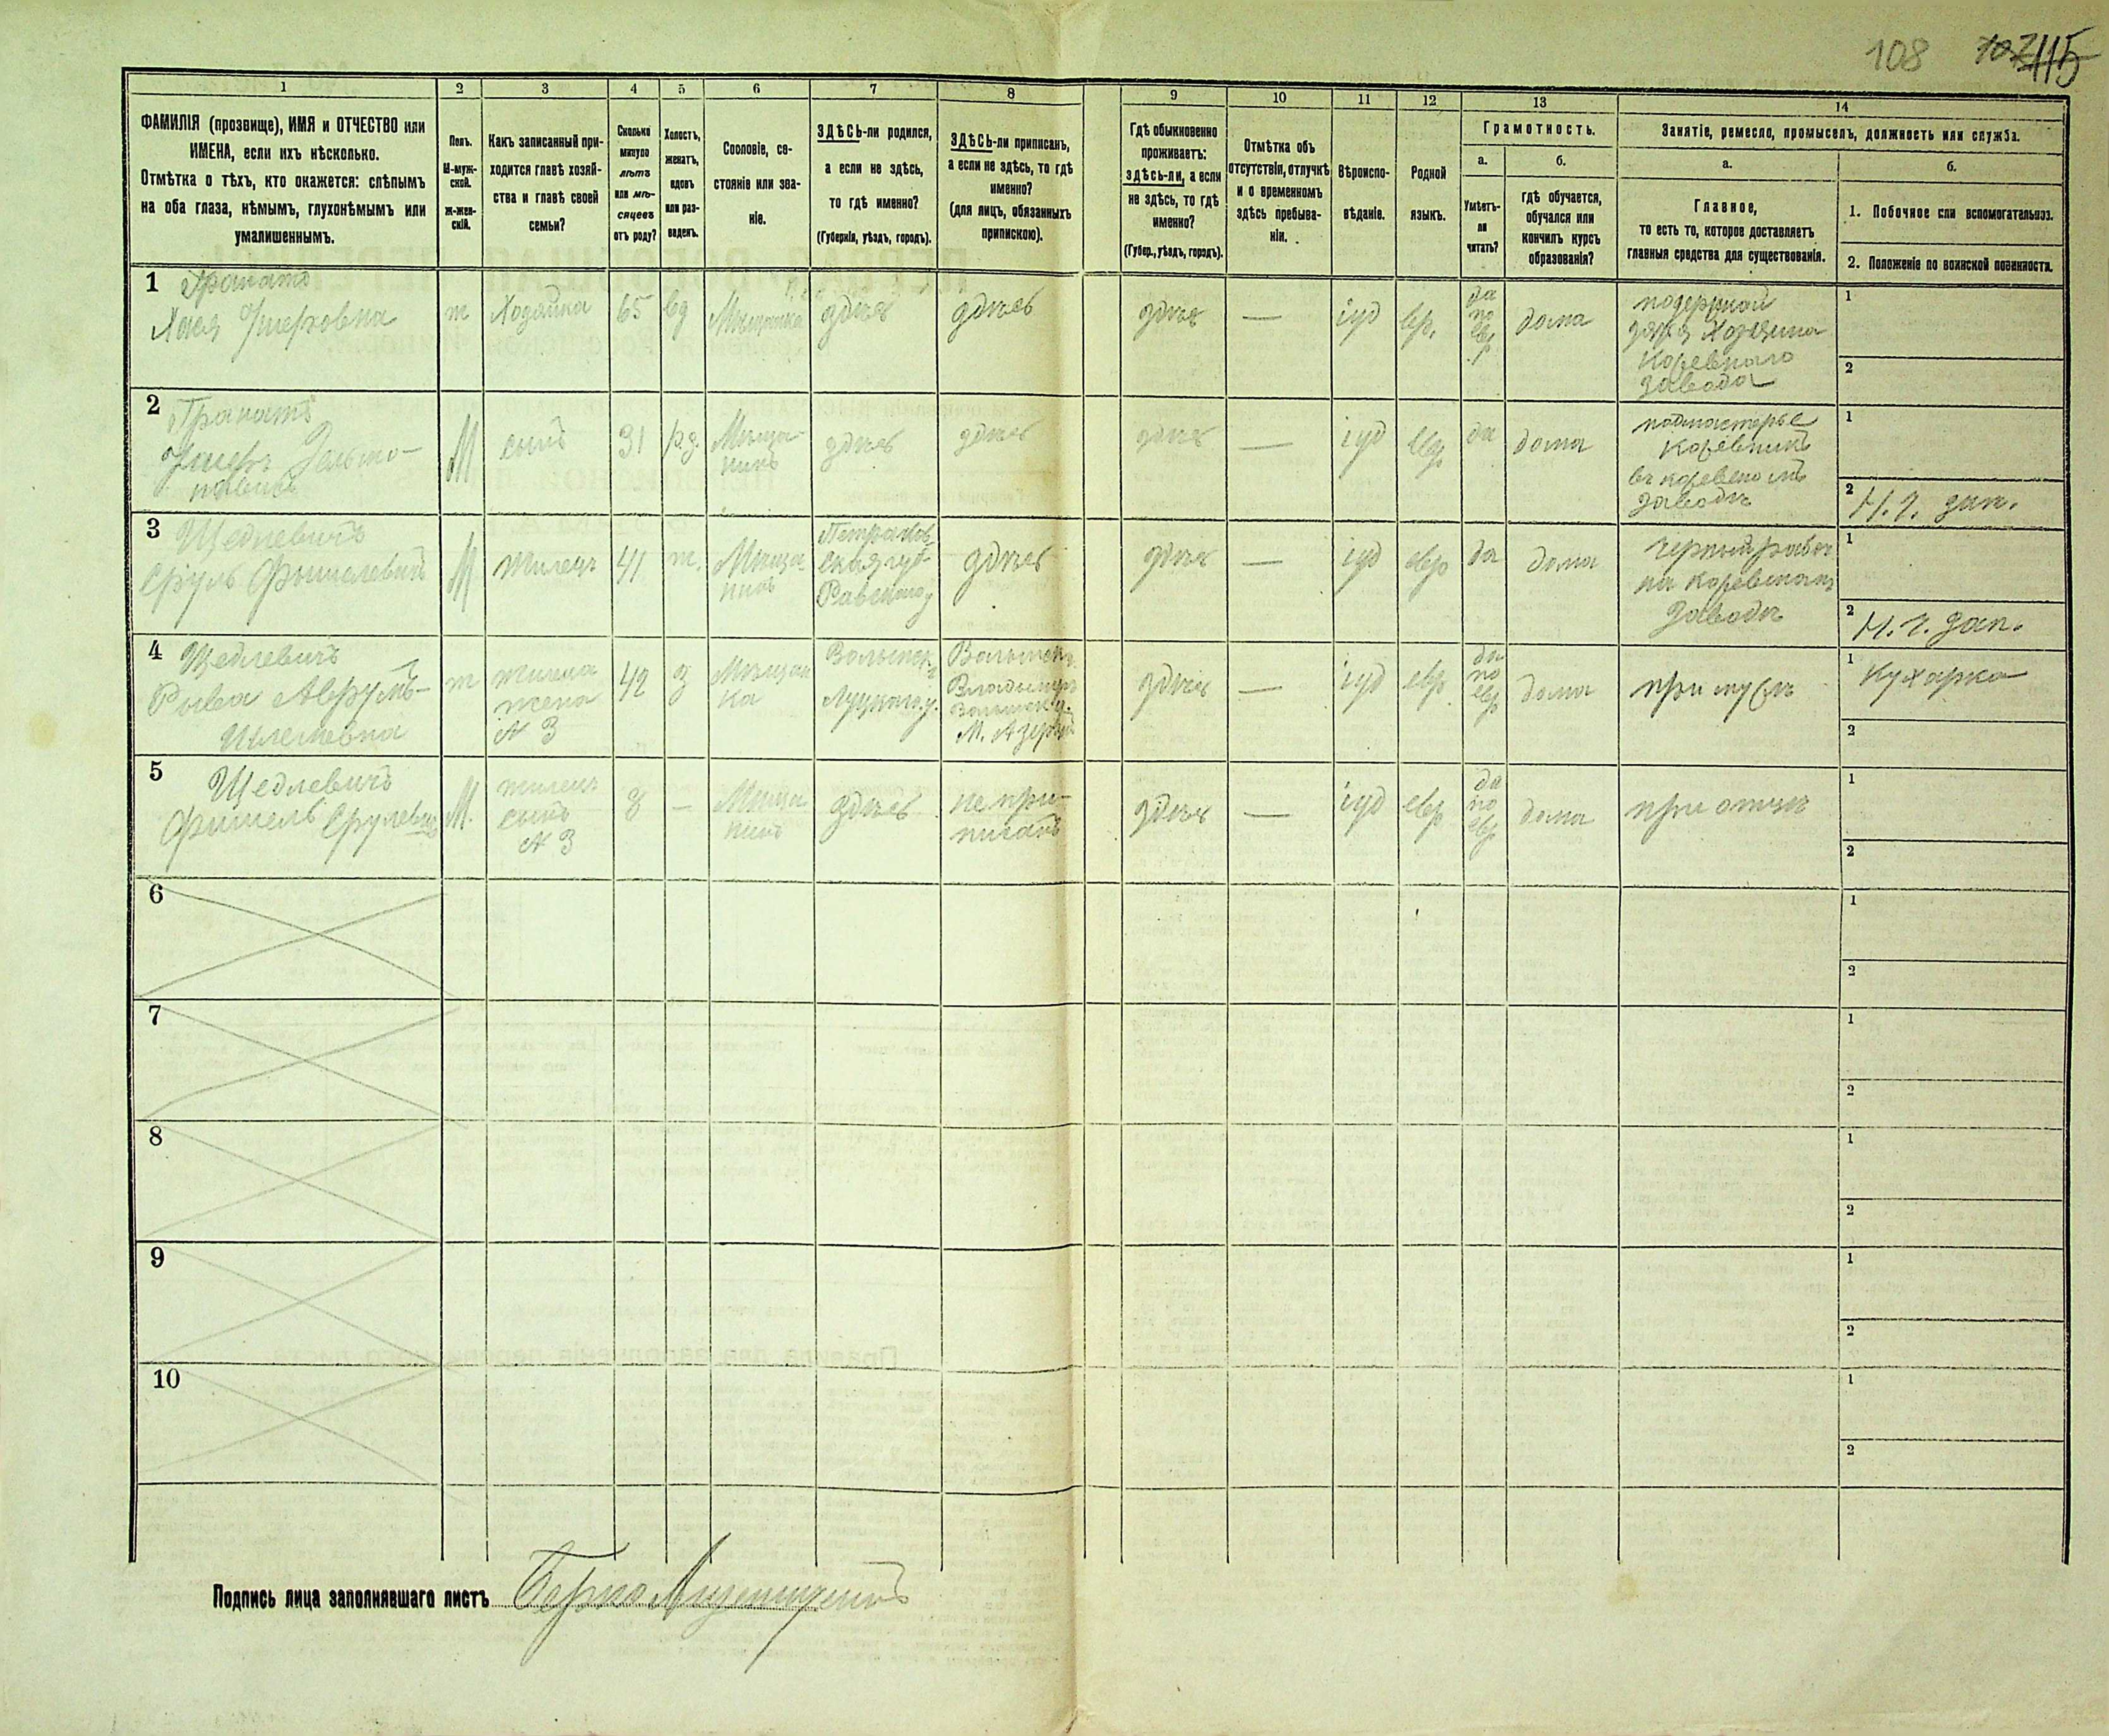 108 107 115
1 2 3 4 5 6 7 8 9 10 11 12 13 14
ФАМИЛІЯ (прозвище), ИМЯ и ОТЧЕСТВО или
ИМЕНА, если ихъ нѣсколько.
Отмѣтка о тѣхъ, кто окажется: слѣпымъ
на оба глаза, нѣмымъ, глухонѣмымъ или
умалишеннымъ.
Полъ.
М-муж-
ской.
Ж-жен-
скій.
Какъ записанный при-
ходится главѣ хозяй-
ства и главѣ своей
семьи?
Сколько
минуло
лѣтъ
или мѣ-
сяцевъ
отъ роду?
Холостъ,
женатъ,
вдовъ
или раз-
веденъ.
Сословіе, со-
стояніе или зва-
ніе.
ЗДѢСЬ-ли родился,
а если не здѣсь,
то гдѣ именно?
(Губернія, уѣздъ, городъ).
ЗДѢСЬ-ли приписанъ,
а если не здѣсь, то гдѣ
именно?
(для лицъ, обязанныхъ
припискою).
Гдѣ обыкновенно
проживаетъ:
здѣсь-ли, а если
не здѣсь, то гдѣ
именно?
(Губер., уѣздъ, городъ).
Отмѣтка объ
отсутствіи, отлучкѣ
и о временномъ
здѣсь пребыва-
ніи.
Вѣроиспо-
вѣданіе.
Родной
языкъ.
Грамотность.
а.
Умѣетъ-
ли
читать?
б.
гдѣ обучается,
обучался или
кончилъ курсъ
образованія?
Занятіе, ремесло, промыселъ, должность или служба.
а.
Главное,
то есть то, которое доставляетъ
главныя средства для существованія.
б.
1. Побочное или вспомогательное.
2. Положеніе по воинской повинности.
1 Гранатъ
Хая Ушеровна
ж
Хозяйка
65
вд
Мѣщанка
здѣсь
здѣсь
здѣсь
—
іуд
евр.
да
по
евр
дома
Хозяина
Кожевнаго
завода
1
2
2 Гранатъ
Ушеръ
М
сынъ
31
Мѣща-
нинъ
здѣсь
здѣсь
здѣсь
—
іуд
евр
да
дома
подмастерье
Кожевникъ
въ кожевеномъ
заводѣ
1
2 Н. ч. зап.
3 Щедлевичъ
Сруль Фишелевичъ
М
жилецъ
41
ж.
Мѣща
нинъ
Петраков-
ская губ
Равскаго у
здѣсь
здѣсь
—
іуд
евр
да
дома
Чернорабоч
на Кожевномъ
Заводѣ
1
2 Н. ч. зап.
4 Щедлевичъ
Рыва Аврумъ-
ж
жилица
жена
№ 3
42
з
Мѣщан
ка
Волынск.
Луцкаго у.
Волынск.
Владимир
Волынск у.
М. Азер
здѣсь
—
іуд
евр
да
по
евр
дома
при мужѣ
1 Кухарка
2
5 Щедлевичъ
Фишель Срулевичъ
М.
жилецъ
сынъ
№ 3
8
—
Мѣща
нинъ
здѣсь
не при-
писанъ
здѣсь
—
іуд
евр
да
по
евр
дома
при отцѣ
1
2
6
1
2
7
1
2
8
1
2
9
1
2
10
1
2
Подпись лица заполнявшаго листъ Берко